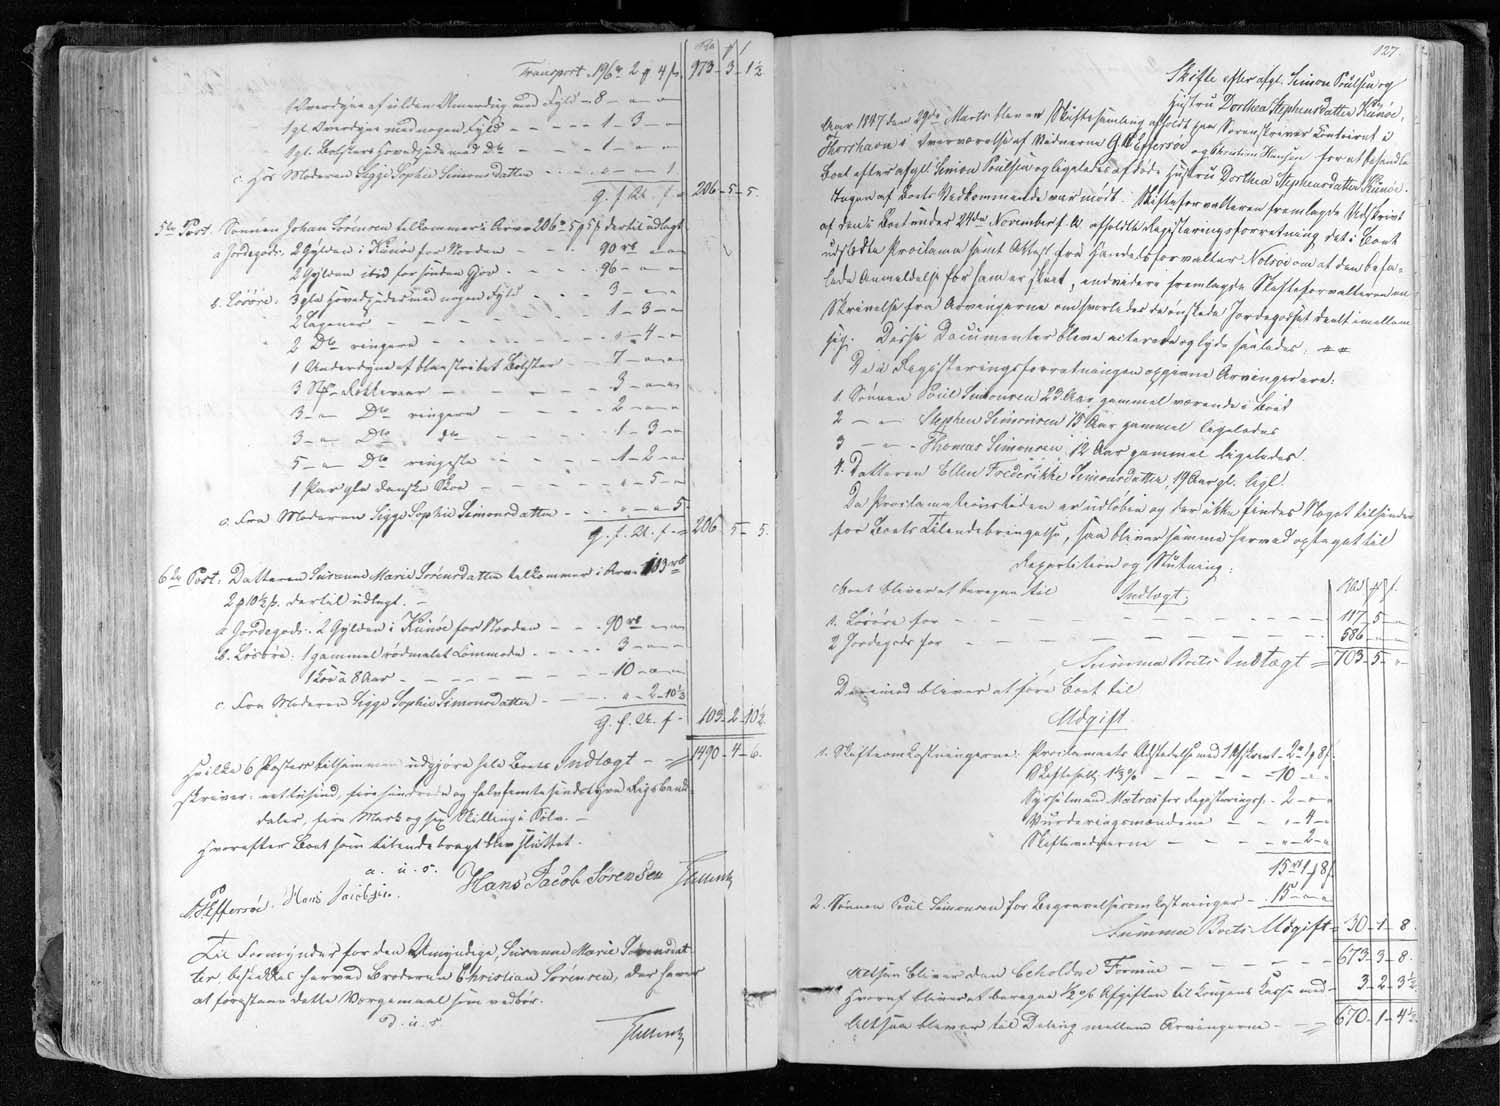 Transport 196 rd 2 ₻ 4 s. 973 - 3 - 1½
1 Overdyne af ulden Umerdug med Fyld - 8 - " - "
1 gl. Overdyne med nogen Fyld - - - - - 1 - 3 - "
1 gl. Bolsters Hovedpude med Do - - - 1 - " - "
c. Hos Moderen Sigge Sophie Simonsdatter - - - " - " - 1
q. s. U. s. 206 - 5 - 5.
5te Post. Sønnen Johan Sørensen tilkommer i Arv 206 rd 5 ₻ 5 s dertil udlagt
a Jordegods: 2 Gylden i Kunøe for Norden 90 rd " - "
2 Gylden ibid for sønden Gov - - - 96 - " - "
b. Løsøre: 3 gle Hovedpuder med nogen Fyld - - - 3 - " - "
2 Lagener - - - - - 1 - 3 - "
2 Do ringere - - - - - " - 4 - "
1 Underdyne af blaastribet Bolster - - 7 - " - "
3 - - - - 3 - " - "
3 - " - Do ringere - - - 2 - " - "
3 - " - Do do - - - 1 - 3 - "
5 - " - Do ringeste - - - 1 - 2 - "
1 Par gle danske Skoe - - - " - 5 - "
c. Fra Moderen Sigge Sophie Simonsdatter - - - " - " - 5
q. s. U. s. - 206 - 5 - 5.
6te Post. Datteren Susanne Marie Sørensdatter tilkommer i Arv 103 rd
2 ₻ 10½ s. dertil udlagt. -
a Jordegods: 2 Gylden i Kunøe for Norden - - - 90 rd " - "
b. Løsøre: 1 gammel rødmalet Kommode - - - 3 - " - "
1 Koe a 8 Aar - - - - 10 - " - "
c. Fra Moderen Sigge Sophie Simonsdatter - - - " - 2 - 10½
q. s. U. s. - 103 - 2 - 10½
Hvilke 6 Poster tilsammen udgjøre hele Boets Indtægt - 1490 - 4 - 6.
skriver: eettusind, fire hundrede og halvfemtesindstyve Rigsbank
daler, fire Mark og sex Skilling i Sølv. -
Hvorefter Boet som tilendebragt blev sluttet.
a. u. s.
Effersøe. Hans Jacobsen. Hans Jacob Sørensen
Til Formynder for den Umyndige, Susanne Marie Sørensdat-
ter, beskikkes herved Broderen Christian Sørensen, der haver
at forestaae dette Værgemaal som vedbør.
d. u. s
127.
Skifte efter afgl. Simon Poulsen og
Hustru Dorthea Stephensdatter Kunøe.
Aar 1847 den 29de Marts blev Skiftesamling afholdt paa Sorenskriver Contoiret i
Thorshavn i Overværelse af Vidnerne G. Effersøe og Christian Hansen for at behandle
Boet efter afgl. Simon Poulsen og ligeledes afdøde Hustru Dorthea Stephensdatter Kunøe.
Ingen af Boets Vedkommende var mødt. Skifteforvalteren fremlagde Udskrivt
af den i Boet under 24de November f. A. afholdte Registeringsforretning det i Boet
udstedte Proclama samt Attest fra Handelsforvalter Nolsøe om at den befa-
lede Anmeldelse for ham er skeet, endvidere fremlagde Skifteforvalteren en
Skrivelse fra Arvingerne om hvorledes de ønskede Jordegodset deelt imellem
sig. Disse Documenter bleve acterede og lyde saaledes:
De i Registeringsforretningen opgivne Arvinger ere:
1. Sønnen Poul Simonsen 23 Aar gammel værende i Boet
2 - " - Stephen Simonsen 15 Aar gammel ligeledes
3 - " - Thomas Simonsen, 12 Aar gammel ligeledes.
4. Datteren Ellen Frederikke Simonsdatter, 19 Aar gl. ligl.
Da Proclamationstiden er udløben og der ikke findes Noget tilhinder
for Boets Tilendebringelse, saa bliver samme herved optaget til
Repartition og Slutning:
Boet bliver at beregne til Indtægt:
1. Løsøre for - - - - 117 - 5 - "
2 Jordegods for - - - - 586 - " - "
Summa Boets Indtægt = 703 - 5 - "
Derimod bliver at føre Boet til
Udgift
1. Skifteomkostningerne: Proclamaets Udstedelse med - 2 rd 1 ₻ 8 s
Skiftesall. 1⅓ % - - - - 10 - " - "
Sysselmand Matras for Registeringsf. - 2 - " - "
Vurderingsmændene - - " - 4 - "
Skiftevidnerne - - - " - 2 - "
15 rd 1 ₻ 8 s.
2. Sønnen Poul Simonsen for Begravelsesomkostninger - 15 - " - "
Summa Boets Udgift = 30 - 1 - 8.
Altsaa bliver den beholdne Formue - - - - 673 - 3 - 8.
Hvoraf bliver at beregne ½ % Afgiften til Kongens Kasse med - 3 - 2 - 3½
Altsaa bliver til Deling mellem Arvingerne - - 670 - 1 - 4½